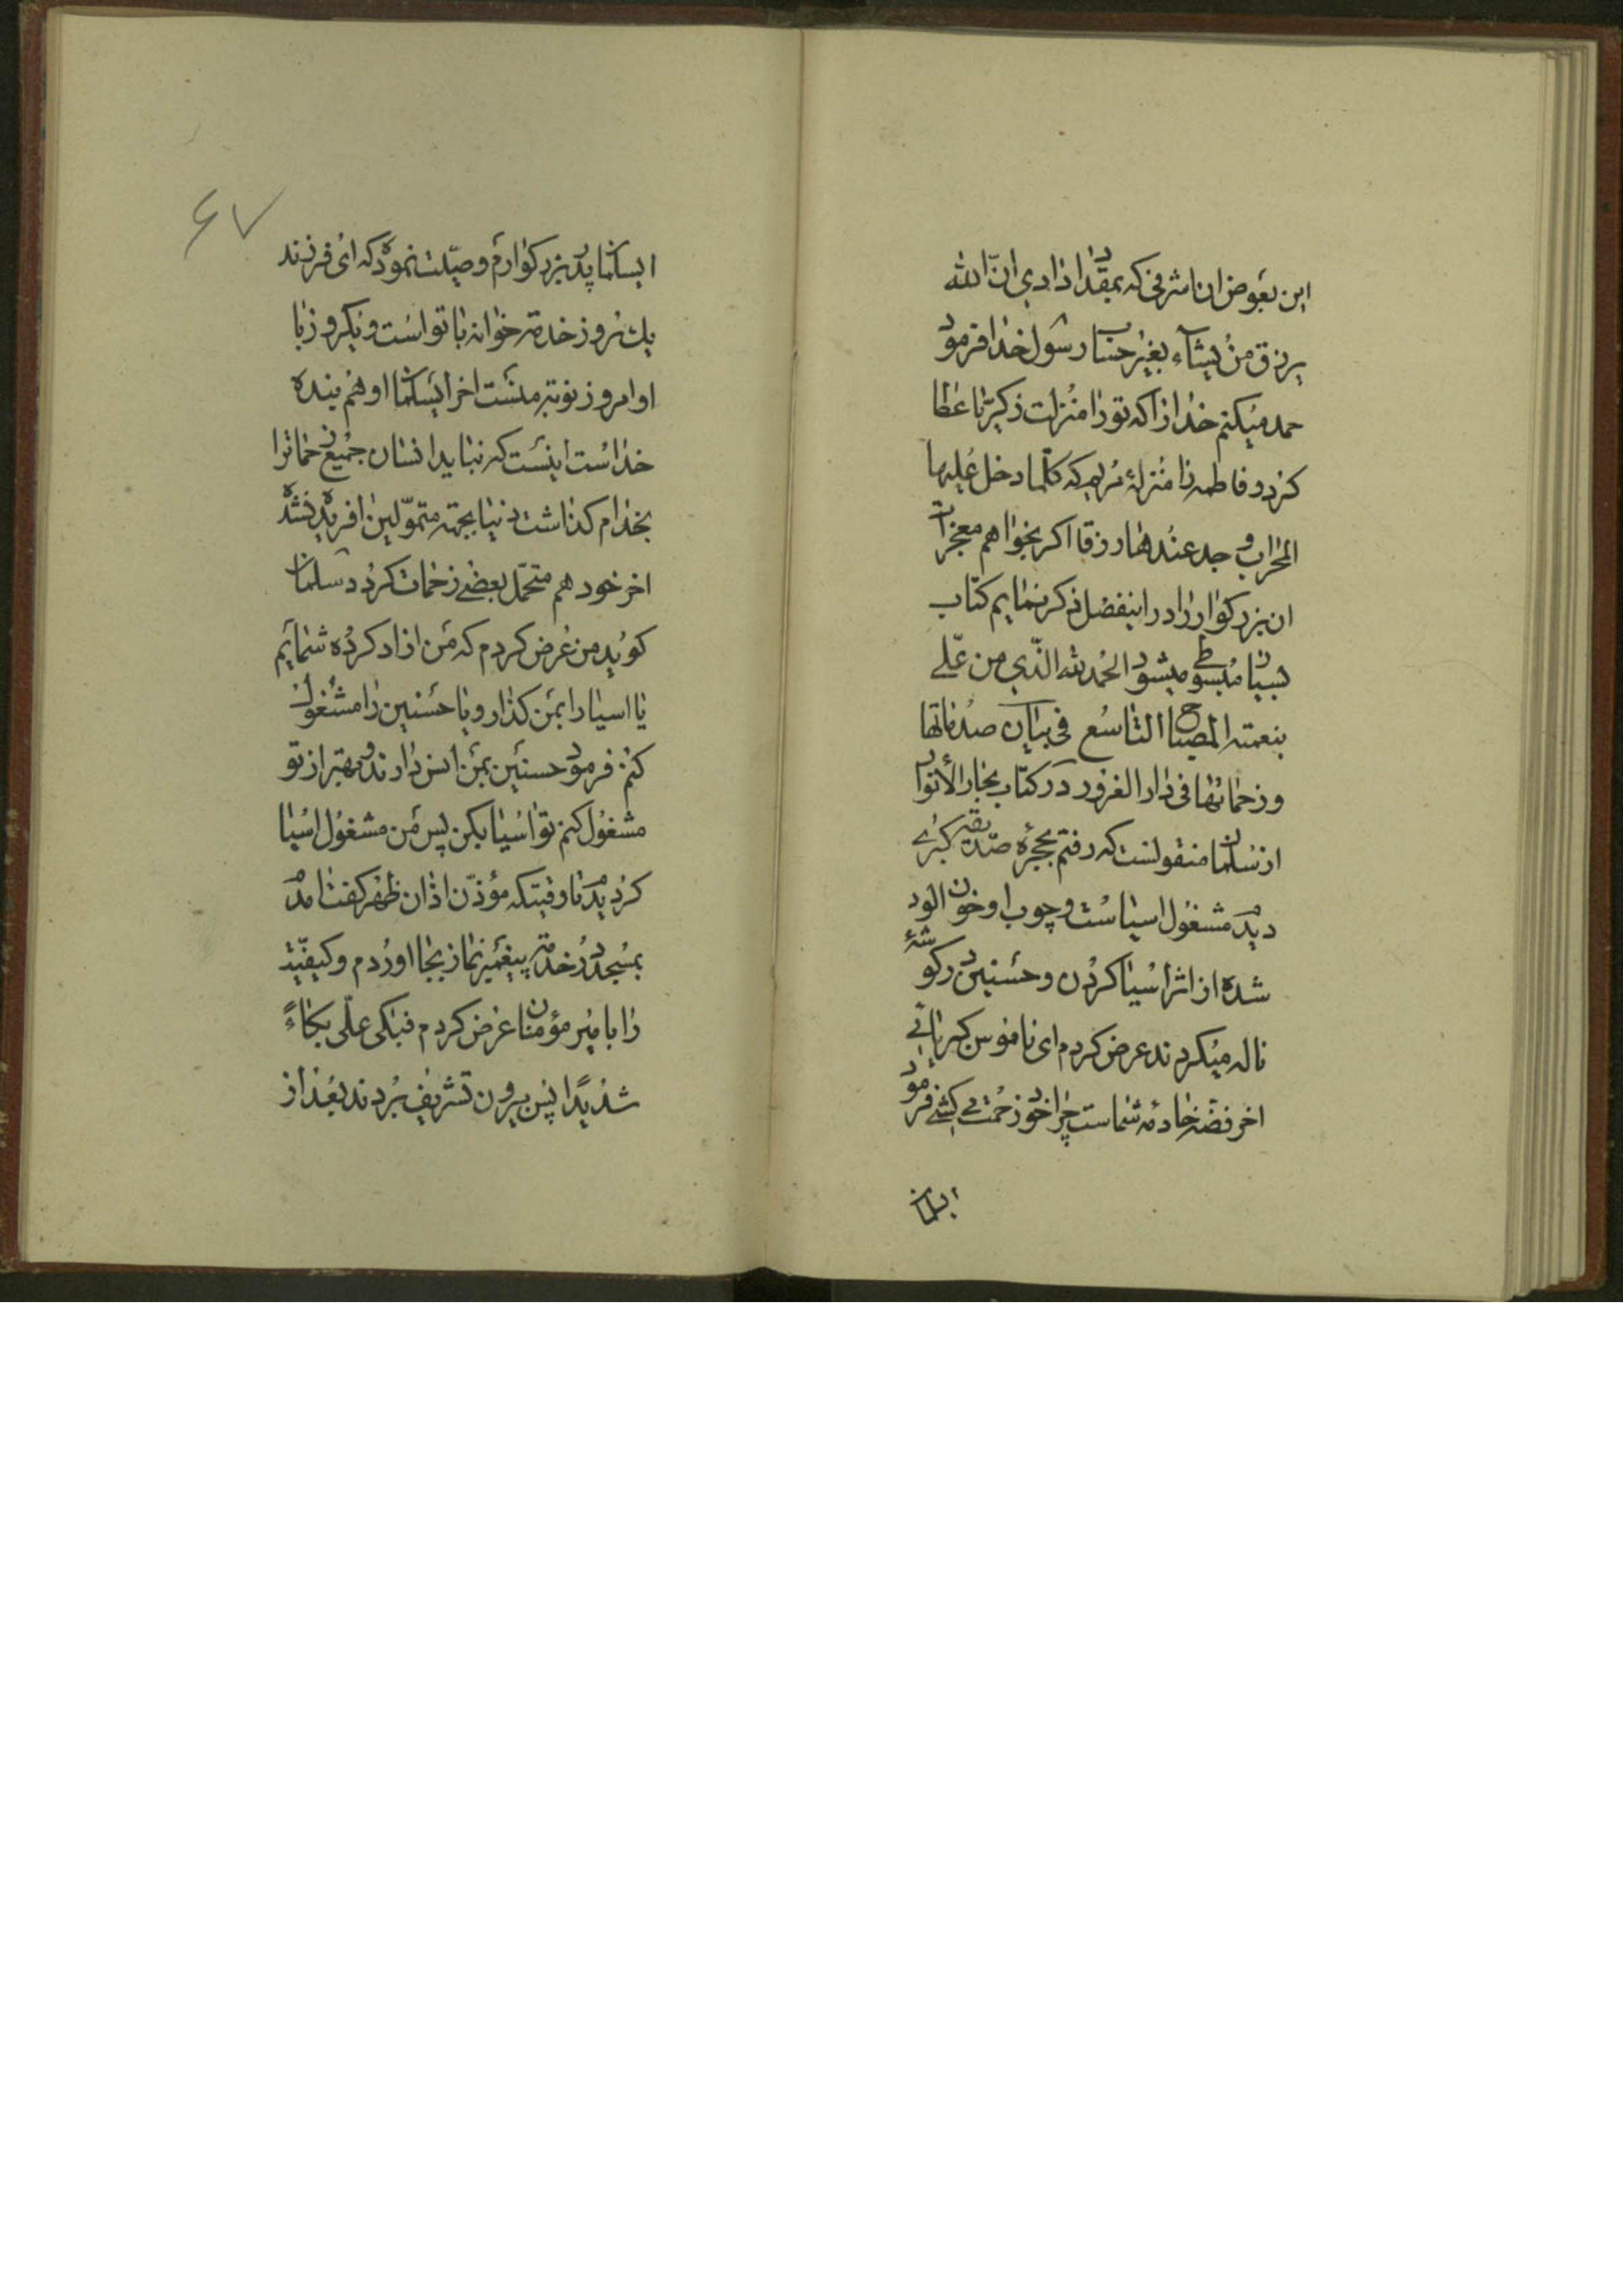 این بعوض ان اشرفی که بمقداد دادی انّ الله
یرزق من یشآء بغیر حساب رسول خدا فرمود
حمد میکنم خدا را که تو را منزلت زکریّا عطا
کرد و فاطمه را منزلهٔ مریم که کلّما دخل علیها
المحراب وجد عندها رزقا اکر بخواهم معجزات
ان بزرکوار را در اینفصل ذکر نمایم کتاب
بسیار مبسوطی میشود الحمد لله الّذی من علّی
بنعمته المصباح التاسع فی بیان صدماتها
و زحماتها فی دار الغرور در کتاب بحار الأنوار
از سلمان منقولست که رفتم بحجرهٔ صدّیقهٔ کبری
دیدم مشغول اسیاست و چوب او خون الود
شده از اثر اسیا کردن و حسنین در کوشهٔ
ناله میکردند عرض کردم ای ناموس کبریائی
اخر فضّه خادمهٔ شماست چرا خود زحمت می کشی فرمود
ایسلمان
ایسلمان پدر بزرکوارم وصیّت نموده که ای فرزند
یک روز خدمت خوانه با تو است و یکروز با
او امروز نوبت منست اخر ایسلمان او هم بنده
خداست اینست که نباید انسان جمیع زحماترا
بخدام کذاشت دنیا بجهة متموّلین افریده نشده
اخر خود هم متحمّل بعضی زحمات کردد سلمان
کوید من عرض کردم که من ازاد کرده شمایم
یا اسیا را بمن کذار و یا حسنین را مشغول
کنم فرمود حسنین بمن انس دارند و بهتر از تو
مشغول کنم تو اسیا بکن پس من مشغول اسیا
کردیدم تا وقتیکه مؤذّن اذان ظهر کفت امدم
بمسجد در خدمت پیغمبر نماز بجا اوردم و کیفیّت
را بامیر مؤمنان عرض کردم فبکی علّی بکاءً
شدیدًا پس بیرون تشریف بردند بعد از
۶۷